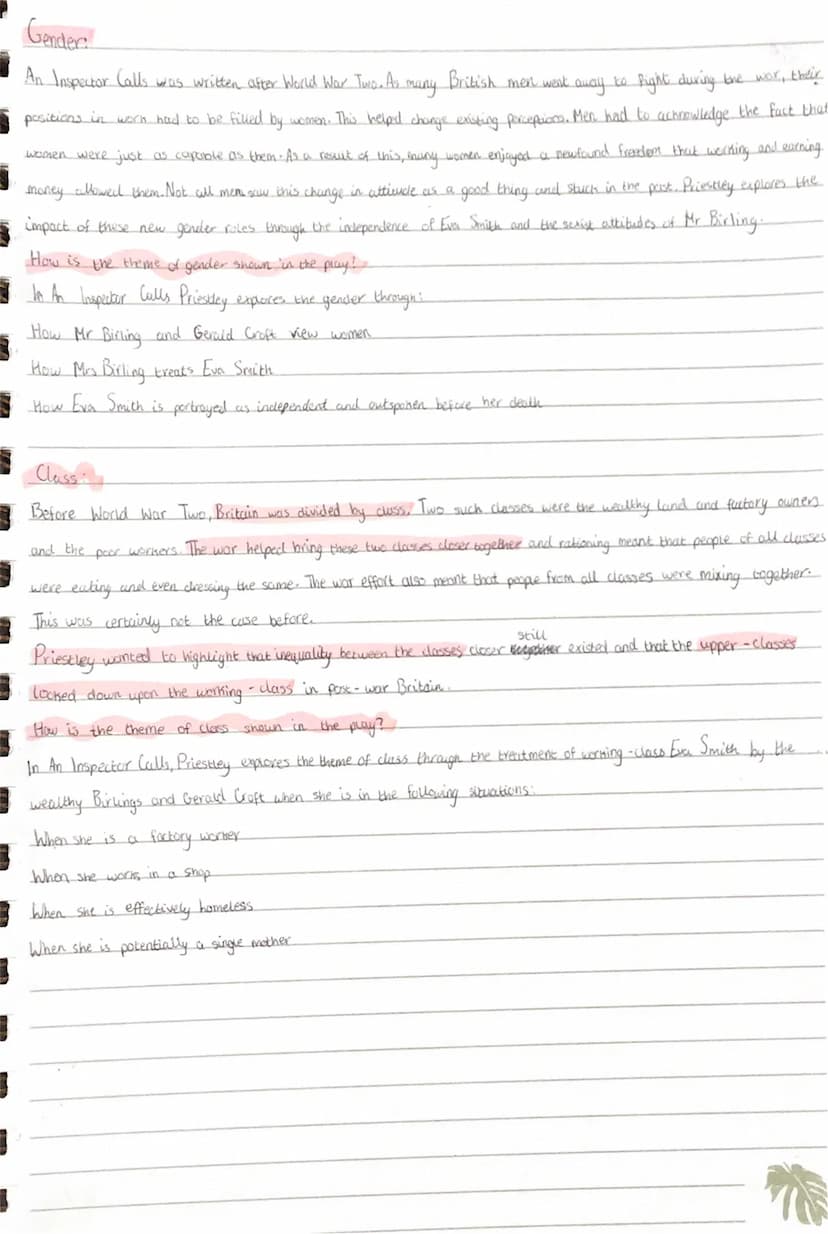 Gender:
An Inspector Calls was written after World War Two. As many British men went away to fight during the war, their
positions in work had to be filled by women. This helped change existing perceptions. Men had to acknowledge the fact that
women were just as capable as them. As a result of this, many women enjoyed a newfound freedom that working and earning
money allowed them. Not all men saw this change in attitude as a good thing and stuck in the past. Priestley explores the
impact of these new gender roles through the independence of Eva Smith and the sexist attitudes of Mr Birling.
How is the theme of gender shown in the play?
In An Inspector Calls Priestley explores the gender through:
How Mr Birling and Gerald Croft view women
How Mrs Birling treats Eva Smith
How Eva Smith is portrayed as independent and outspoken before her death
Class:
Before World War Two, Britain was divided by class. Two such classes were the wealthy land and factory owners
and the poor workers. The war helped bring these two classes closer together and rationing meant that people of all classes
were eating and even dressing the same. The war effort also meant that people from all classes were mixing together.
This was certainly not the case before.
Priestley wanted to highlight that inequality between the classes closer together still existed and that the upper-classes
looked down upon the working-class in post-war Britain.
How is the theme of class shown in the play?
In An Inspector Calls, Priestley explores the theme of class through the treatment of working-class Eva Smith by the
wealthy Birlings and Gerald Croft when she is in the following situations:
When she is a factory worker
When she works in a shop
When she is effectively homeless
When she is potentially a single mother